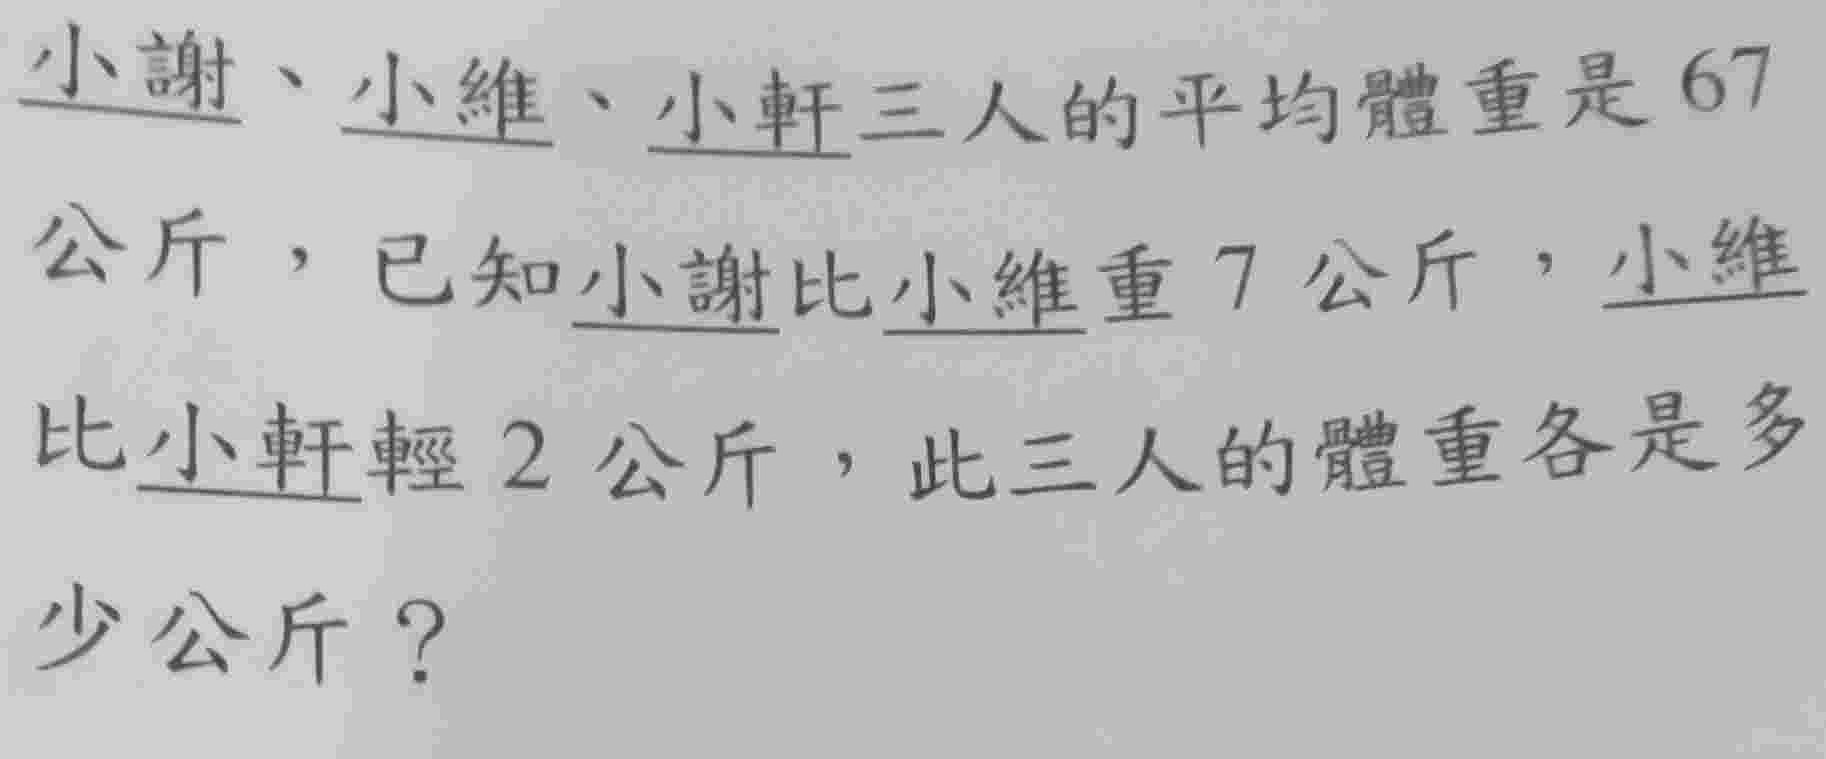 小謝、小維、小軒三人的平均體重是 67
公斤，已知小謝比小維重 7 公斤，小維
比小軒輕 2 公斤，此三人的體重各是多
少公斤？